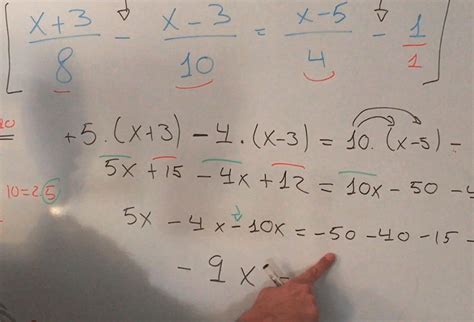 [ x+3/8 - x-3/10 = x-5/4 - 1/1 ]
+5.(x+3) - 4.(x-3) = 10.(x-5) -
5x + 15 - 4x + 12 = 10x - 50 - 4
10=2.5
5x - 4x - 10x = -50 - 40 - 15 -
- 9x